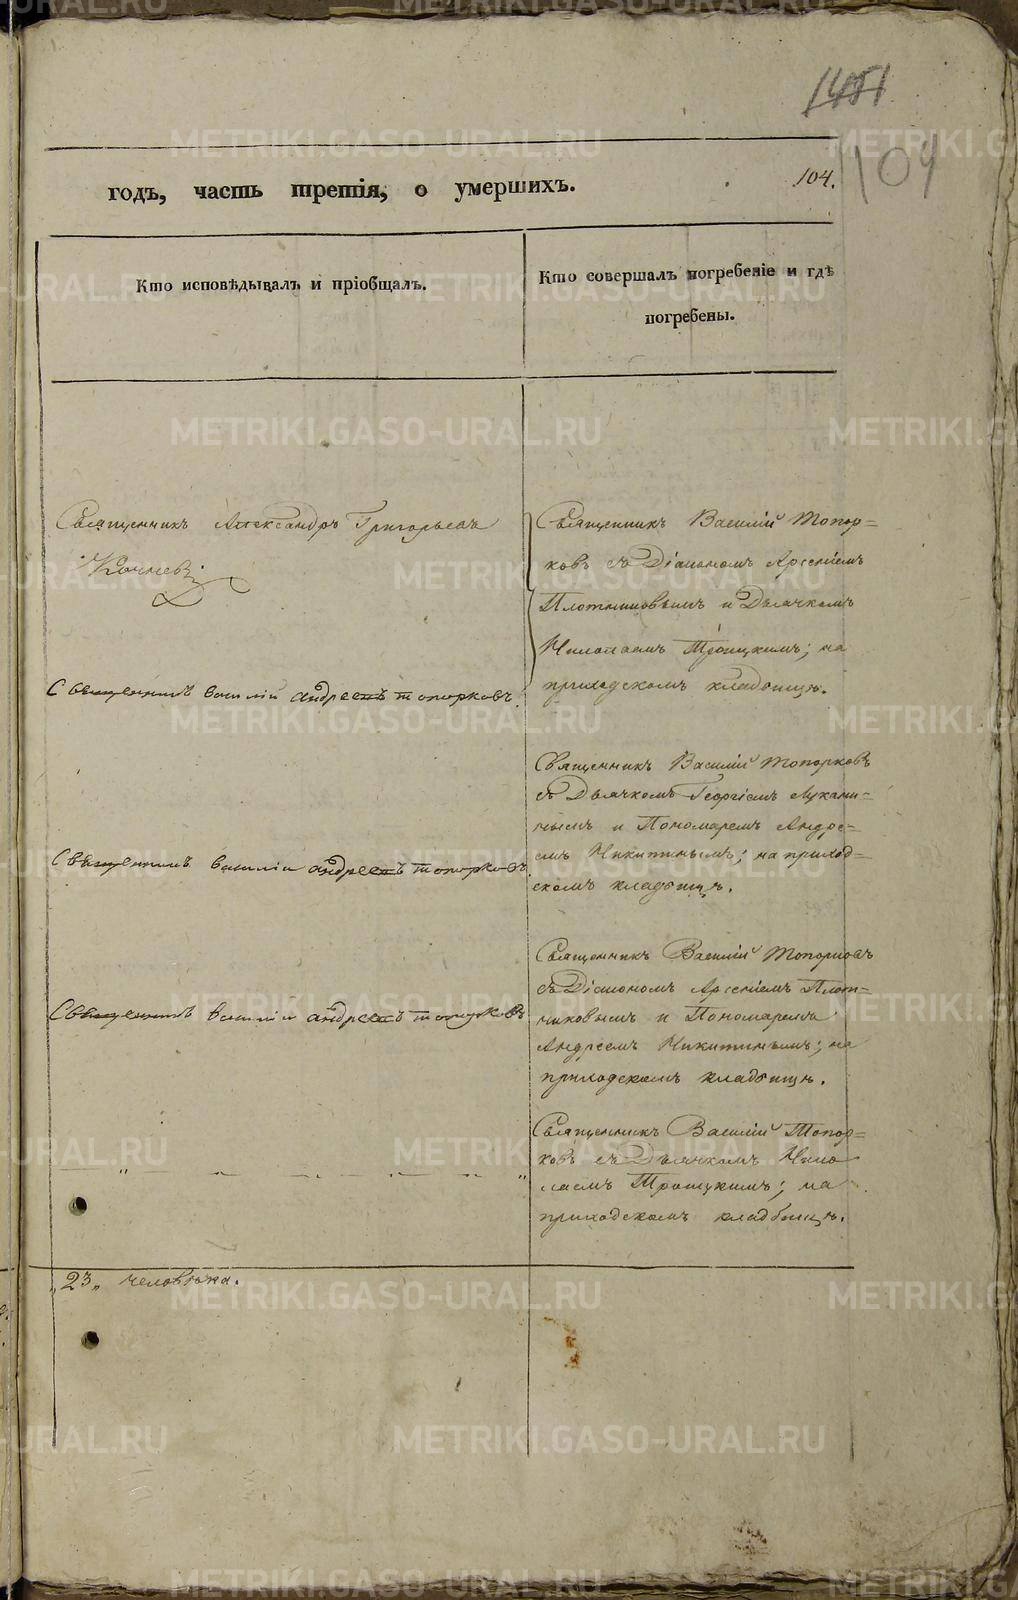 104
годъ, часть третія, о умершихъ.
104.
Кто исповѣдывалъ и пріобщалъ.
Кто совершалъ погребеніе и гдѣ
погребены.
Священникъ Александръ Григорьевъ
Священникъ Василій Топор=
ковъ съ Діакономъ Арсеніемъ
Плотниковымъ и Дьячкомъ
Николаемъ Троицкимъ; на
приходскомъ кладбищѣ.
Священникъ василій андреевъ топорковъ.
Священникъ Василій Топорковъ
съ Дьячкомъ Георгіемъ Лукани=
нымъ и Пономаремъ Андре=
емъ Никитинымъ; на приход=
скомъ кладбищѣ.
Священникъ василіи андреевъ топорковъ.
Священникъ Василій Топорковъ
съ Діакономъ Арсеніемъ Плот=
никовымъ и Пономаремъ
Андреемъ Никитинымъ; на
приходскомъ кладбищѣ.
Священникъ василіи андреевъ топорковъ
Священникъ Василій Топор=
ковъ съ Дьячкомъ Нико
лаемъ Троицкимъ; на
приходскомъ кладбищѣ.
„23„ человѣка.
METRIKI.GASO-URAL.RU